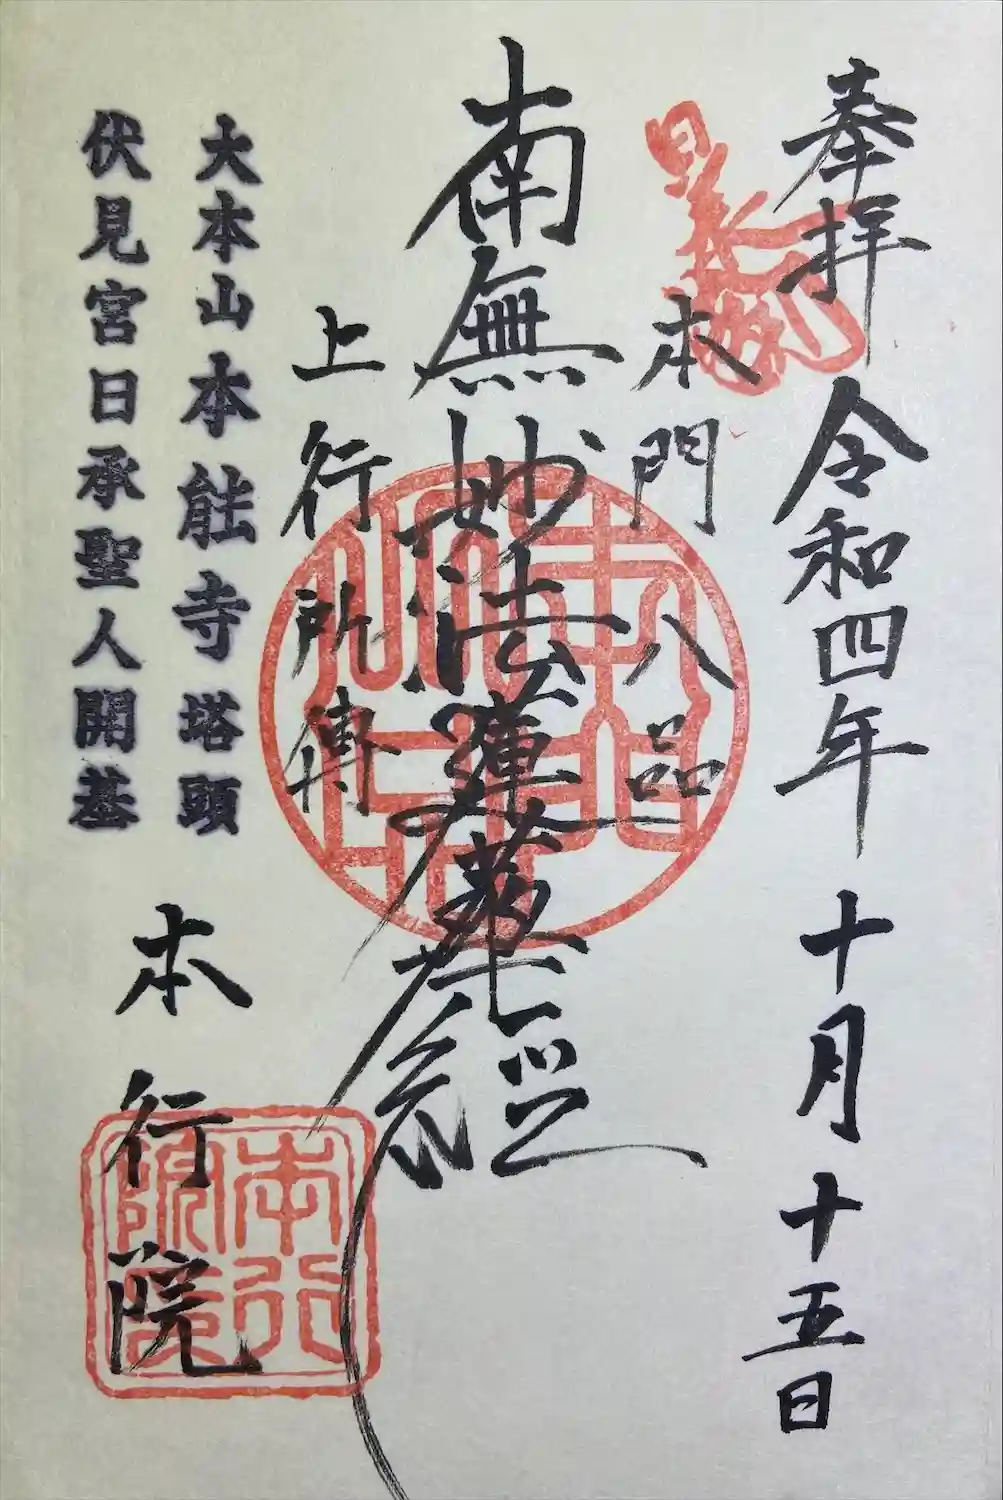 奉拝 令和四年十月十五日
本門八品
南無妙法蓮華経
上行所傳
大本山本能寺塔頭
伏見宮日承聖人開基
本行院
本行院